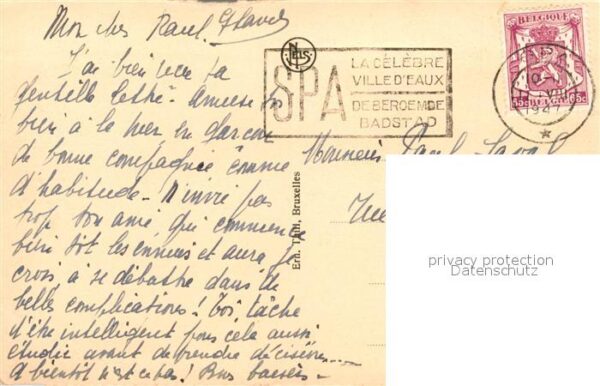 Mon cher Paul,
J'ai bien reçu ta
gentille lettre. Amuse toi
bien à la mer en garçon
de bonne compagnie comme
d'habitude. N'envie pas
trop ton ami qui commence
bien tôt les ennuis et aura je
crois à se débattre dans de
belles complications! Toi, tâche
d'être intelligent pour cela aussi
étudie avant de prendre décisions....
A bientôt n'est ce pas! Bons baisers -
NELS
SPA
LA CÉLÈBRE
VILLE D'EAUX
DE BEROEMDE
BADSTAD
BELGIQUE
65c BELGIË 65c
1947
Monsieur Paul
Ern. Thill, Bruxelles
privacy protection
Datenschutz